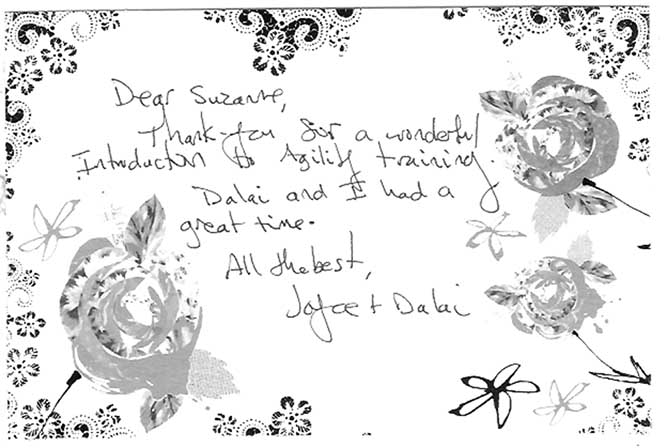 Dear Suzanne,
Thank-you for a wonderful
Introduction to Agility training.
Dalai and I had a
great time.
All the best,
Joyce + Dalai